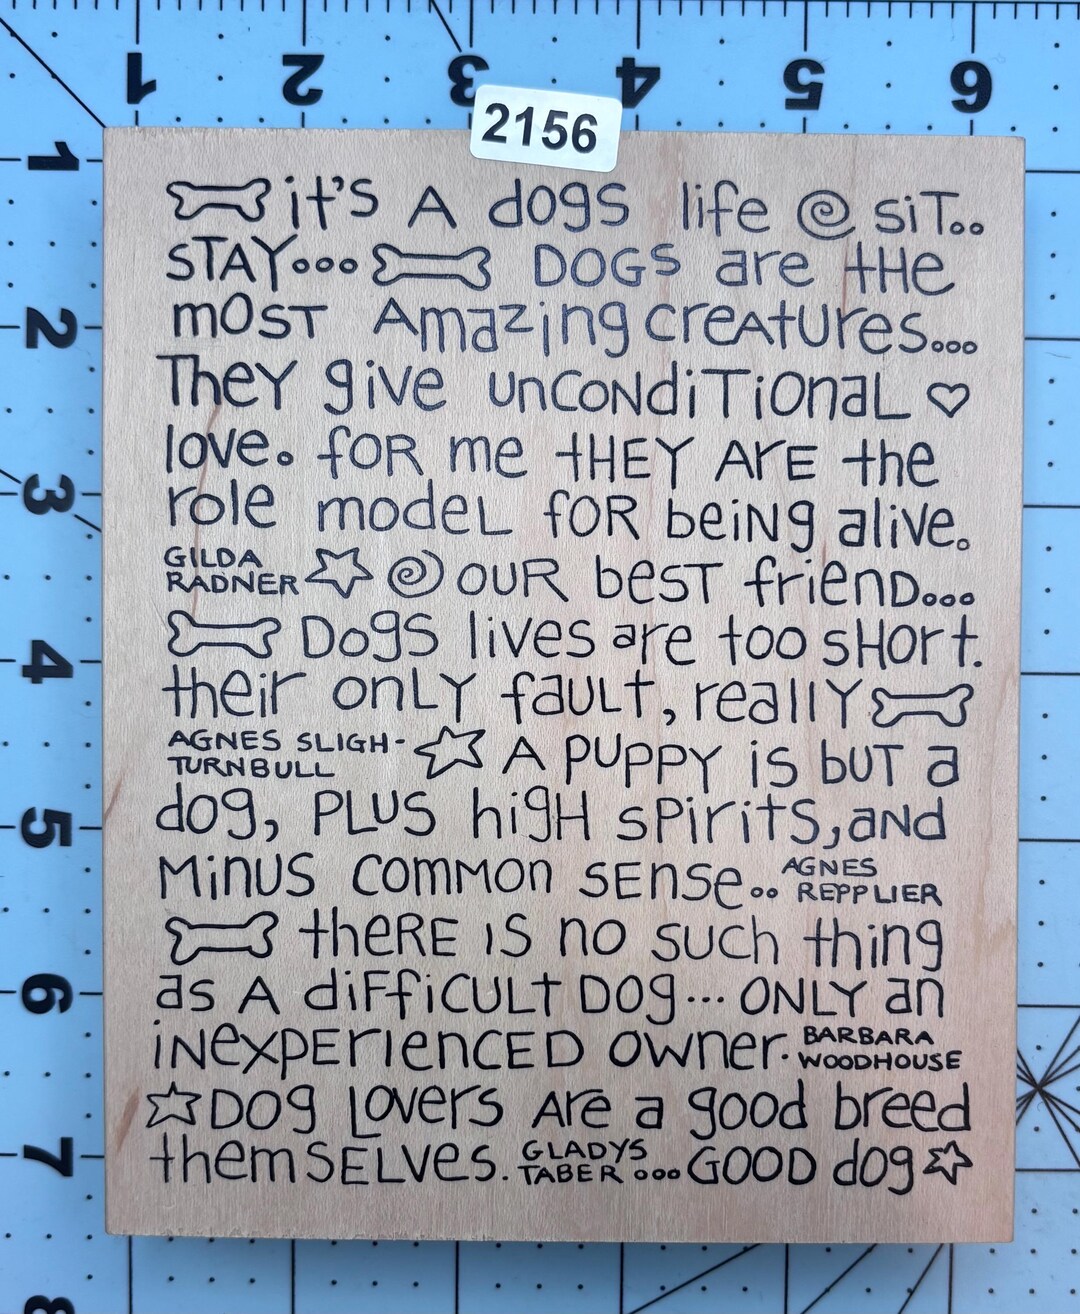 1 2 3 4 5 6
2156
1
2
3
4
5
6
7
8
it's A dogs life sit..
STAY... DOGS are tHe
mOST Amazing creAtures...
TheY give unCONdiTiOnaL
love. fOR me tHEY ArE the
role modeL fOR beiNg alive.
GILDA
RADNER OUR besT frienD...
DogS lives are too sHort.
their onLY fauLt, reallY
AGNES SLIGH-
TURNBULL A PuPPY is buT a
dog, PLUS higH sPiritS, aNd
MiNUS COmMOn SEnse.. AGNES
REPPLIER
theRE IS no suCh thing
as A diFfiCULt DOg... ONLY an
iNexPErienCED Owner. BARBARA
WOODHOUSE
DOg Lovers Are a good breed
themSELVes. GLADYS
TABER ...GOOD dog